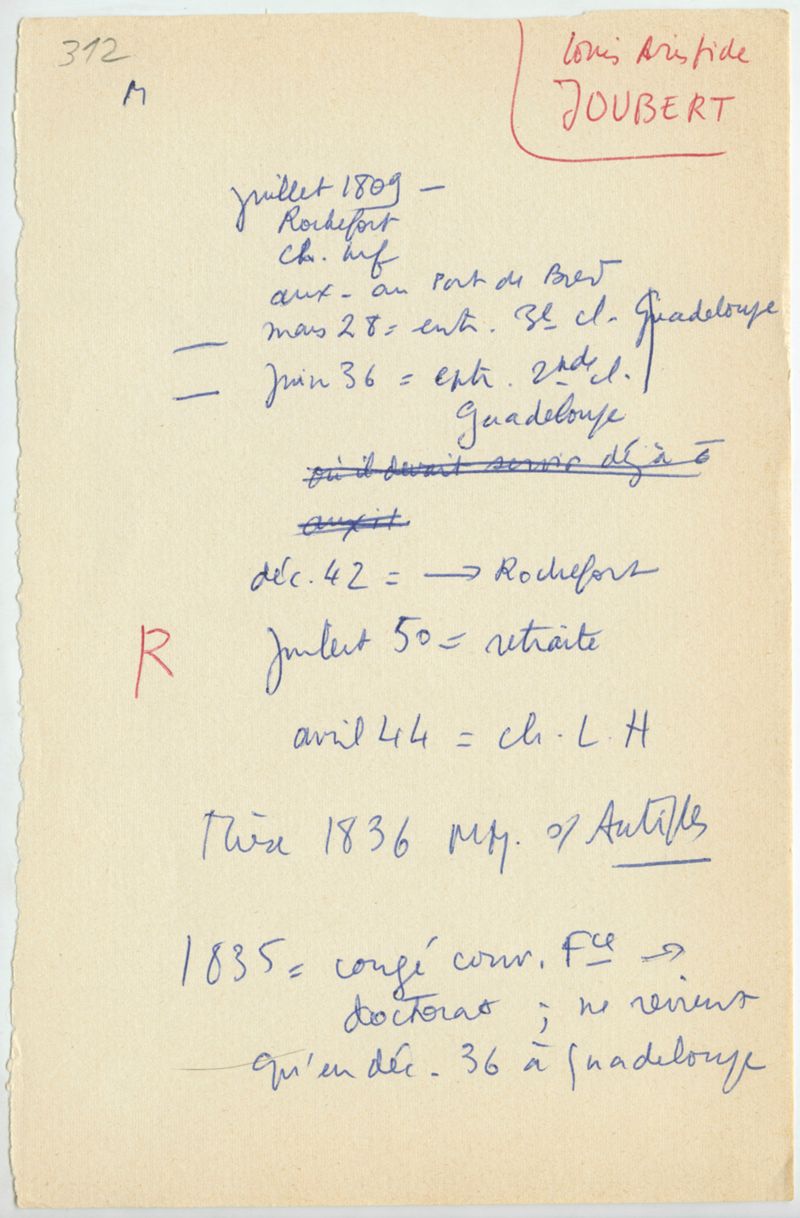 312
M
Louis Aristide
JOUBERT
juillet 1809 —
Rochefort
ch.
aux - au Port de Brest
mars 28 = entr. 3e cl. Guadeloupe
Juin 36 = entr. 2nde cl.
Guadeloupe
où il devait servir déjà
auxil.
déc. 42 = → Rochefort
R
50 = retraite
avril 44 = ch. L. H
Thèse 1836 Antilles
1835 = congé conv. Fce →
doctorat ; ne revient
qu'en déc. 36 à Guadeloupe